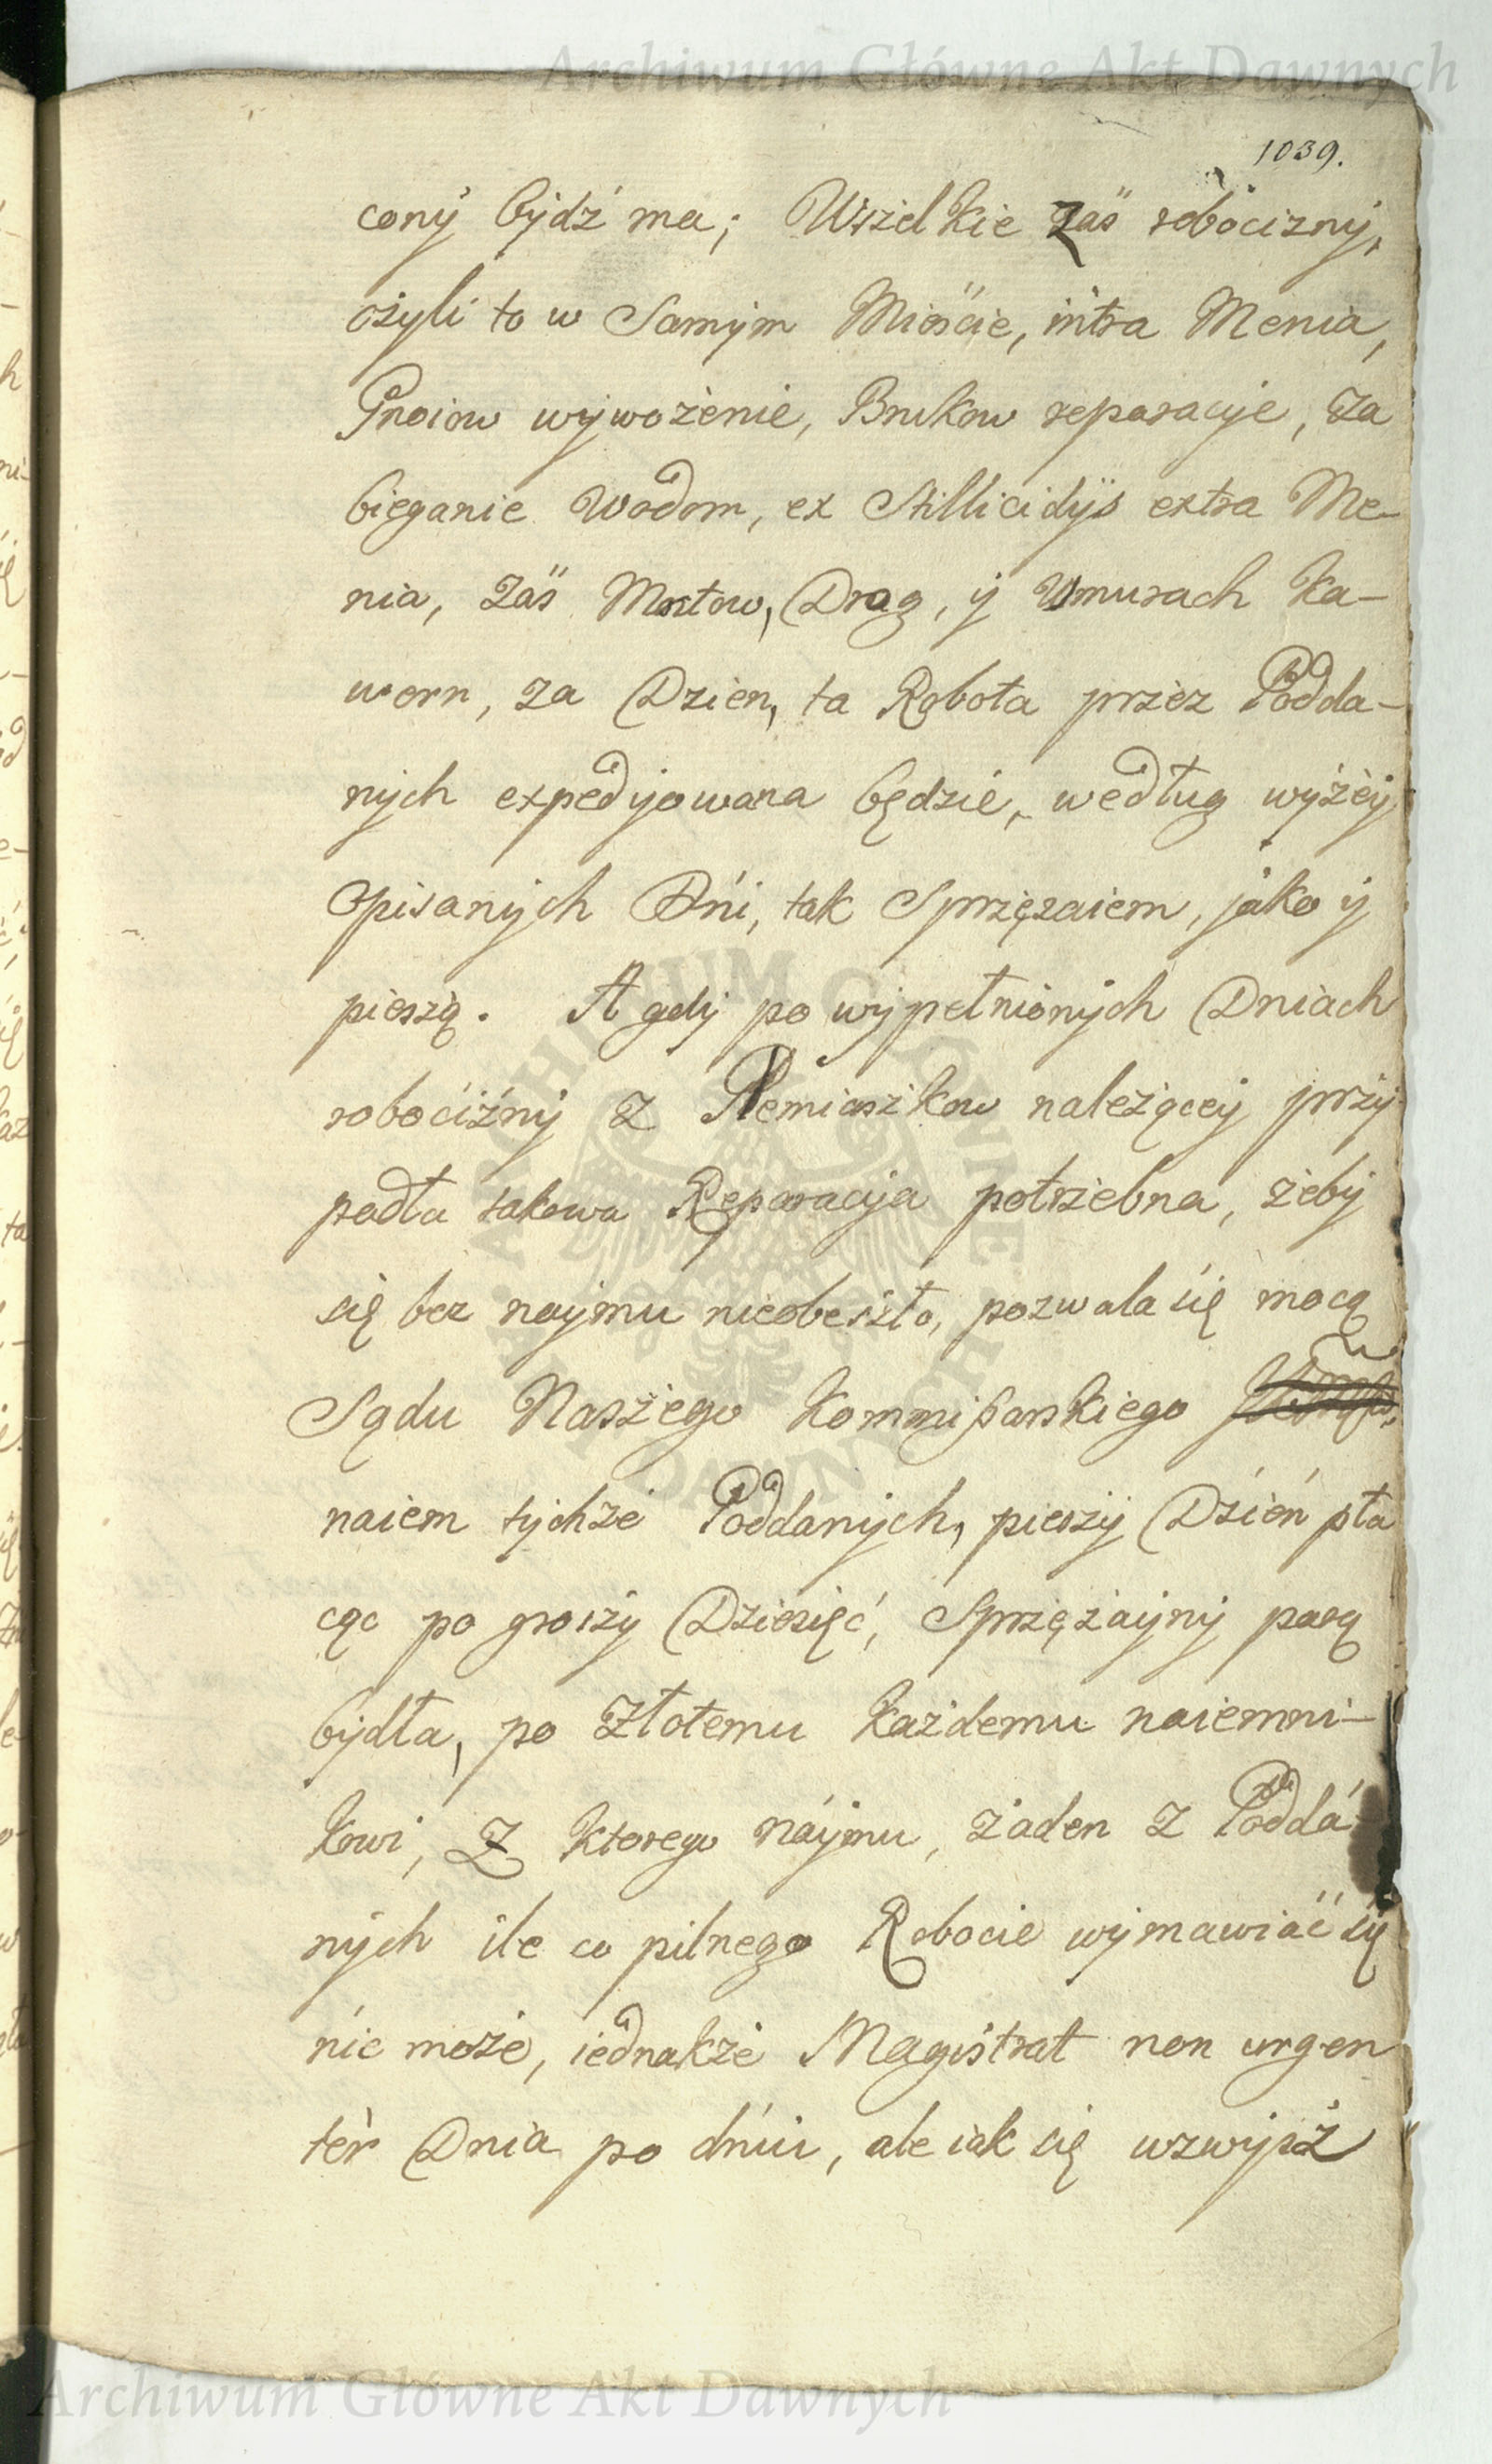 Archiwum Główne Akt Dawnych
1039.
cony bydź ma; Wszelkie zaś robocizny,
czyli to w Samym Mieście, intra Menia,
Gnoiow wywożenie, Brukow reparacye, Za
bieganie Wodom, ex Stillicidijs extra Me-
nia, zaś Mostow, Drog, y Wmurach Ka-
wern, za Dzien, ta Robota przez Podda-
nych expedyowana będzie, według wyżey
opisanych Dni, tak Sprzęzaiem, jako y
pieszą. A gdy po wypełnionych Dniach
robocizny z Remiaszkow należącey przy
padła takowa Reparacya potrzebna, żeby
się bez naymu nieobeszło, pozwala się mocą
Sądu Naszego Kommissarskiego
naiem tychże Poddanych, pieszy Dzień pła
cąc po groszy Dziesięć, Sprzężayny parą
bydła, po Złotemu Każdemu naiemni-
kowi, Z Ktorego náymu, żaden z Poddá-
nych ile co pilnego Robocie wymawiać się
nie może, iednakże Magistrat non urgen
tèr Dnia po dniu, ale iak się wzwyż
ARCHIWUM GŁÓWNE AKT DAWNYCH
Archiwum Główne Akt Dawnych